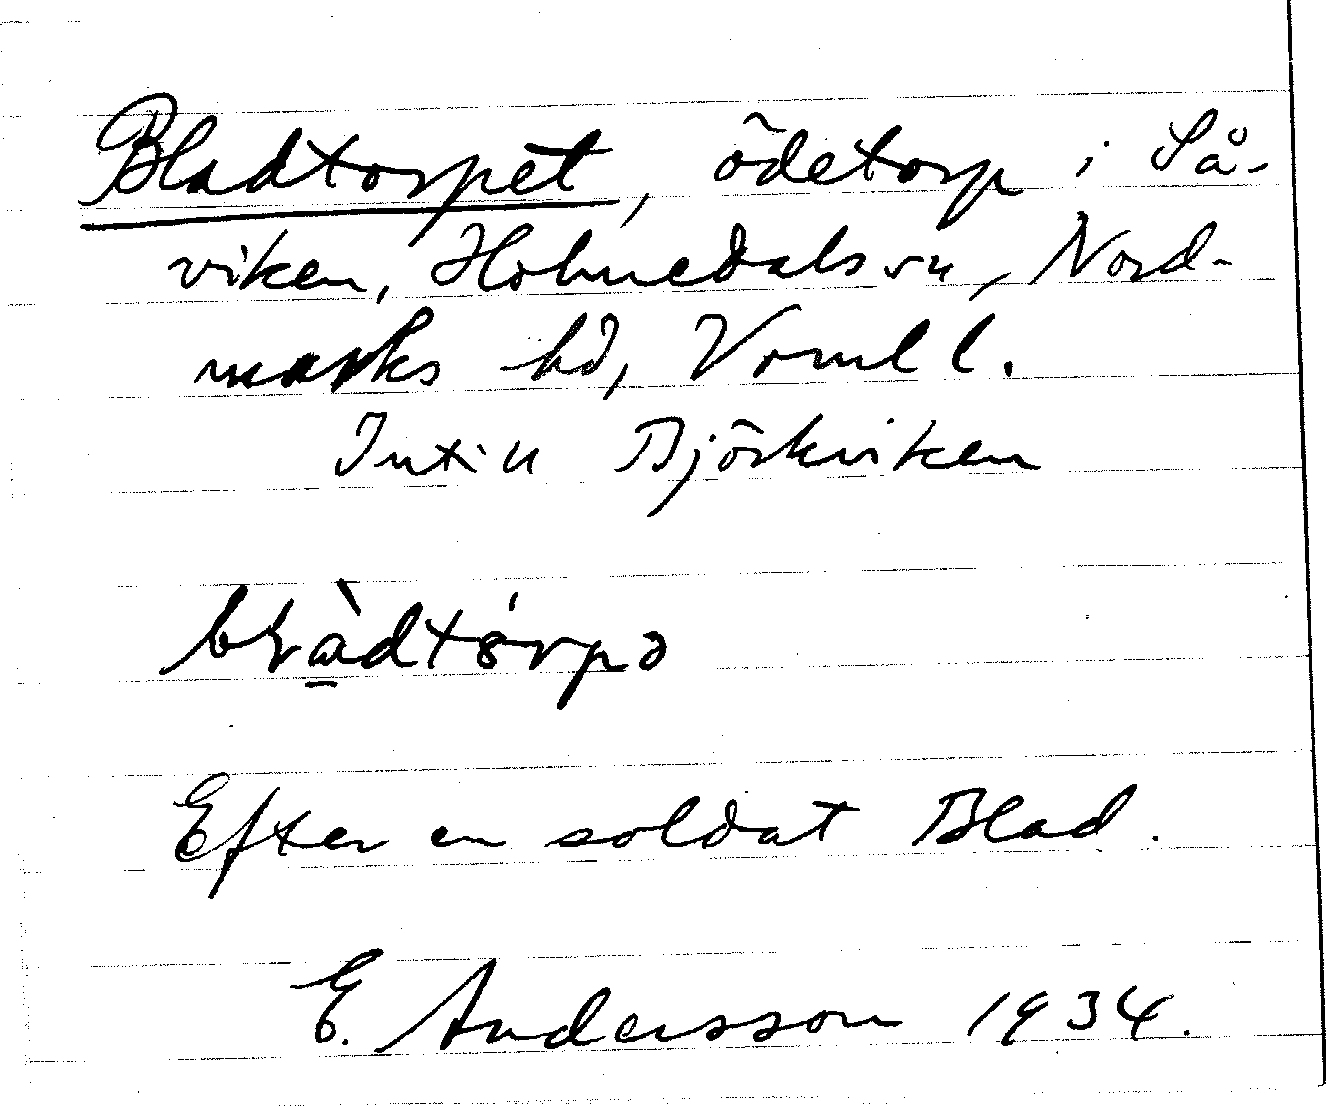 Bladtorpet, ödetorp i Så-
viken, Holmedals sn, Nord-
marks hd, Vrml l.
Intill Björkviken
Efter en soldat Blad.
E. Andersson 1934.